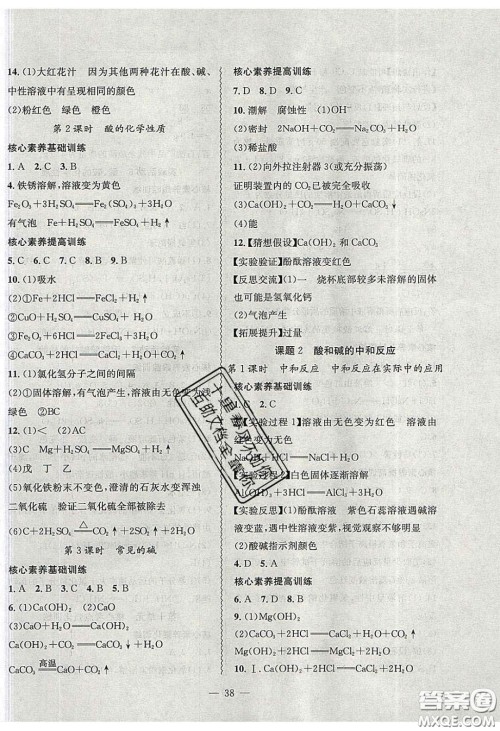 14. (1)大红花汁　因为其他两种花汁在酸、碱、
中性溶液中有呈现相同的颜色
(2)粉红色　绿色　橙色
第2课时　酸的化学性质
核心素养基础训练
1. A　2. C　3. B
4. 铁锈溶解,溶液变为黄色
Fe₂O₃+3H₂SO₄══Fe₂(SO₄)₃+3H₂O
有气泡　Fe+H₂SO₄══FeSO₄+H₂↑
核心素养提高训练
5. C　6. C　7. B　8. B　9. B
10. (1)吸水
(2)①Fe+2HCl══FeCl₂+H₂↑
②CuO+H₂SO₄══CuSO₄+H₂O
③Fe₂O₃+6HCl══2FeCl₃+3H₂O
④CaCO₃+2HCl══CaCl₂+H₂O+CO₂↑
11. (1)氯化氢分子之间的间隔
(2)①固体溶解,有气泡产生,溶液由无色变为浅
绿色　②BD
12. (1)<　(2)AD
(3)Mg+H₂SO₄══MgSO₄+H₂↑
(4)戊　丁　乙
(5)氧化铁粉末不变色,澄清的石灰水变浑浊
二氧化硫　验证二氧化硫全部被除去
(6)C+2H₂SO₄(浓)△══CO₂↑+2SO₂↑+2H₂O
第3课时　常见的碱
核心素养基础训练
1. A　2. D　3. D　4. C　5. B
6. (1)Ca(OH)₂　(2)Ca(OH)₂
(3)CaO+H₂O══Ca(OH)₂
Ca(OH)₂+CO₂══CaCO₃↓+H₂O
CaCO₃高温══CaO+CO₂↑
核心素养提高训练
7. D　8. D　9. C
10. (1)潮解　腐蚀性　(1)OH⁻
(2)密封　2NaOH+CO₂══Na₂CO₃+H₂O
(3)稀盐酸
11. (1)Ca(OH)₂+CO₂══CaCO₃↓+H₂O
(2)向外拉注射器3(或充分振荡)
证明装置内的CO₂完全被吸收
(3)CaCO₃+2HCl══CaCl₂+H₂O+CO₂↑
(4)能
12.【猜想假设】Ca(OH)₂和CaCO₃
【实验验证】酚酞溶液变红色
【反思交流】(1)一　烧杯底部较多未溶解的固体
也可能是氢氧化钙
(2)气泡产生
【拓展提升】过量
课题2　酸和碱的中和反应
第1课时　中和反应　中和反应在实际中的应用
核心素养基础训练
1. C　2. C
【实验过程1】溶液由无色变为红色　溶液由
红色变为无色
NaOH+HCl══NaCl+H₂O
【实验过程2】白色固体逐渐溶解
Al(OH)₃+3HCl══AlCl₃+3H₂O
【实验反思】(1)酚酞溶液　紫色石蕊溶液遇碱
溶液变蓝,遇中性溶液变紫,视觉观察不够明显
(2)酸碱指示剂颜色
4. D　5. A
核心素养提高训练
6. B　7. D　8. D
9. (1)Mg(OH)₂
(2)CaCO₃+2HCl══CaCl₂+H₂O+CO₂↑
(3)Mg(OH)₂+2HCl══MgCl₂+2H₂O
10. Ⅰ. Ca(OH)₂+2HCl══CaCl₂+2H₂O
— 38 —
答案圈
MXQE.COM